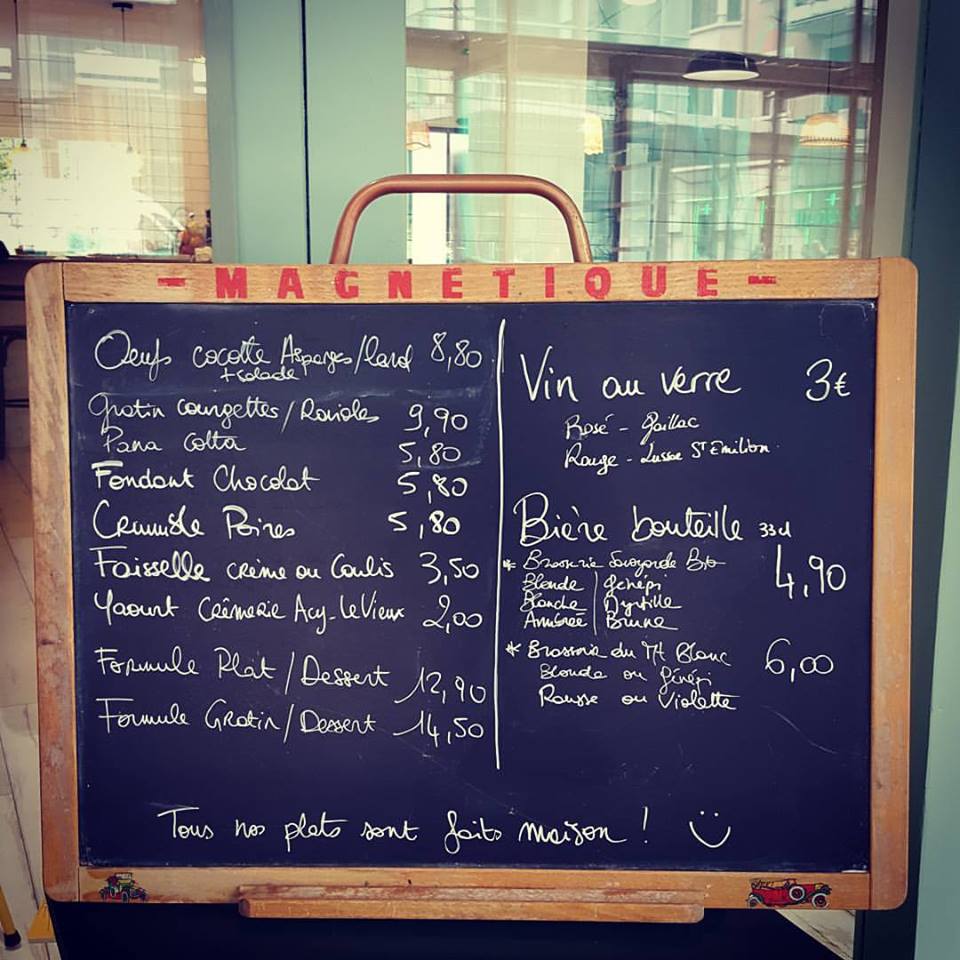 - MAGNETIQUE -
Oeufs cocotte Asperges/lard 8,80
+ salade
Gratin courgettes/Ravioles 9,90
Pana Cotta 5,80
Fondant Chocolat 5,80
Crumble Poires 5,80
Faisselle crème ou Coulis 3,50
Yaourt Crêmerie Acy-Le Vieux 2,00
Formule Plat/Dessert 12,90
Formule Gratin/Dessert 14,50
Vin au verre 3€
Rosé - Gaillac
Rouge - Lussac St Emilion
Bière bouteille 33cl
* Brasserie Savoyarde Bio 4,90
Blonde | Génépi
Blanche | Myrtille
Ambrée | Brune
* Brasserie du Mt Blanc 6,00
Blonde ou Génépi
Rousse ou Violette
Tous nos plats sont faits maison !